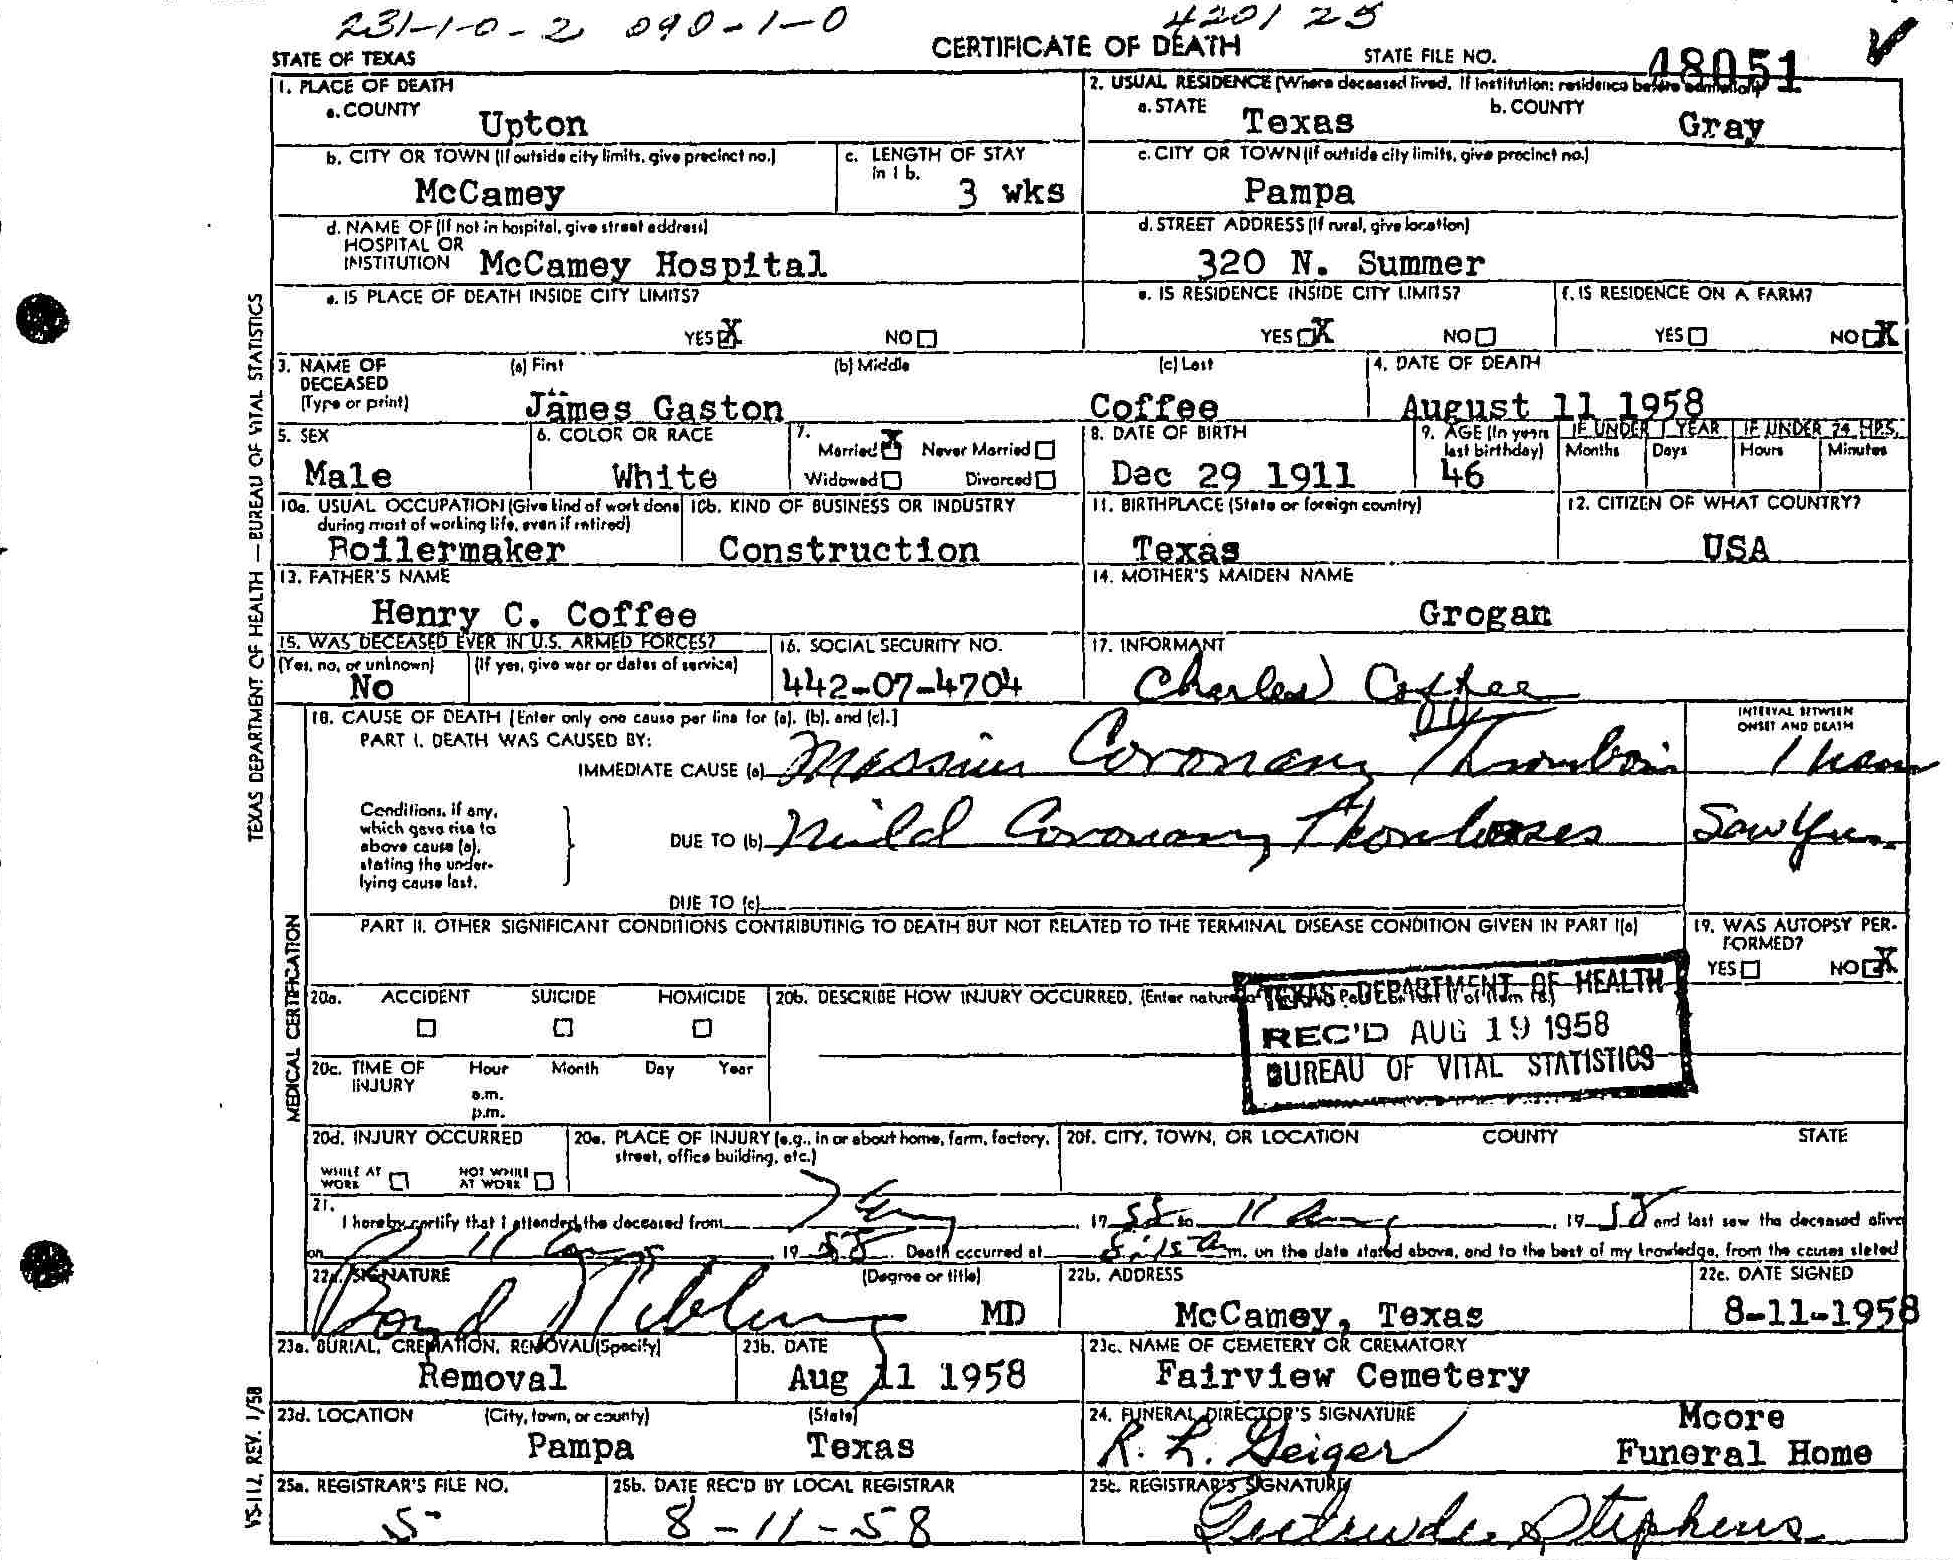 231-1-0-2 090-1-0 420125
CERTIFICATE OF DEATH
STATE OF TEXAS STATE FILE NO. 48051
1. PLACE OF DEATH
a. COUNTY Upton
2. USUAL RESIDENCE (Where deceased lived. If institution: residence before admission)
a. STATE Texas b. COUNTY Gray
b. CITY OR TOWN (If outside city limits, give precinct no.) McCamey
c. LENGTH OF STAY in 1 b. 3 wks
c. CITY OR TOWN (If outside city limits, give precinct no.) Pampa
d. NAME OF (If not in hospital, give street address)
HOSPITAL OR
INSTITUTION McCamey Hospital
d. STREET ADDRESS (If rural, give location)
320 N. Summer
e. IS PLACE OF DEATH INSIDE CITY LIMITS?
YES X NO
e. IS RESIDENCE INSIDE CITY LIMITS?
YES X NO
f. IS RESIDENCE ON A FARM?
YES NO X
3. NAME OF DECEASED (Type or print)
(a) First (b) Middle (c) Last
James Gaston Coffee
4. DATE OF DEATH
August 11 1958
5. SEX
Male
6. COLOR OR RACE
White
7.
Married X Never Married
Widowed Divorced
8. DATE OF BIRTH
Dec 29 1911
9. AGE (In years last birthday)
46
IF UNDER 1 YEAR IF UNDER 24 HRS.
Months Days Hours Minutes
10a. USUAL OCCUPATION (Give kind of work done during most of working life, even if retired)
Boilermaker
10b. KIND OF BUSINESS OR INDUSTRY
Construction
11. BIRTHPLACE (State or foreign country)
Texas
12. CITIZEN OF WHAT COUNTRY?
USA
13. FATHER'S NAME
Henry C. Coffee
14. MOTHER'S MAIDEN NAME
Grogan
15. WAS DECEASED EVER IN U.S. ARMED FORCES?
(Yes, no, or unknown) (If yes, give war or dates of service)
No
16. SOCIAL SECURITY NO.
442-07-4704
17. INFORMANT
Charles Coffee
18. CAUSE OF DEATH [Enter only one cause per line for (a), (b), and (c).]
INTERVAL BETWEEN ONSET AND DEATH
PART I. DEATH WAS CAUSED BY:
IMMEDIATE CAUSE (a) Massive Coronary Thrombosis 1 hour
Conditions, if any,
which gave rise to
above cause (a),
stating the under-
lying cause last.
DUE TO (b) Mild Coronary Thromboses Sev Yrs.
DUE TO (c)
PART II. OTHER SIGNIFICANT CONDITIONS CONTRIBUTING TO DEATH BUT NOT RELATED TO THE TERMINAL DISEASE CONDITION GIVEN IN PART I(a)
19. WAS AUTOPSY PER-
FORMED?
YES NO X
20a. ACCIDENT SUICIDE HOMICIDE
20b. DESCRIBE HOW INJURY OCCURRED. (Enter nature
TEXAS DEPARTMENT OF HEALTH
REC'D AUG 19 1958
BUREAU OF VITAL STATISTICS
20c. TIME OF INJURY Hour Month Day Year
a.m.
p.m.
20d. INJURY OCCURRED
WHILE AT WORK NOT WHILE AT WORK
20e. PLACE OF INJURY (e.g., in or about home, farm, factory, street, office building, etc.)
20f. CITY, TOWN, OR LOCATION COUNTY STATE
21.
I hereby certify that I attended the deceased from 7 Aug, 19 58 to 11 Aug, 19 58 and last saw the deceased alive
on 11 Aug, 19 58. Death occurred at 8:15 A m. on the date stated above, and to the best of my knowledge, from the causes stated
22a. SIGNATURE (Degree or title)
Boyd MD
22b. ADDRESS
McCamey, Texas
22c. DATE SIGNED
8-11-1958
23a. BURIAL, CREMATION, REMOVAL (Specify)
Removal
23b. DATE
Aug 11 1958
23c. NAME OF CEMETERY OR CREMATORY
Fairview Cemetery
23d. LOCATION (City, town, or county) (State)
Pampa Texas
24. FUNERAL DIRECTOR'S SIGNATURE
R. L. Geiger
Moore
Funeral Home
25a. REGISTRAR'S FILE NO.
5
25b. DATE REC'D BY LOCAL REGISTRAR
8-11-58
25c. REGISTRAR'S SIGNATURE
Gertrude Stephens
TEXAS DEPARTMENT OF HEALTH — BUREAU OF VITAL STATISTICS
MEDICAL CERTIFICATION
VS-112, REV. 1/58